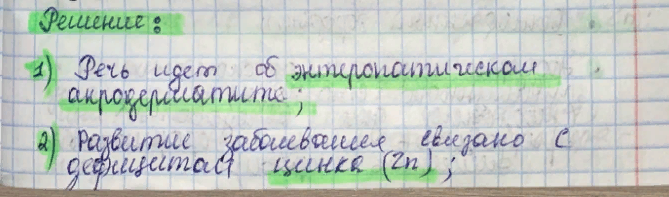 Решение:
1) Речь идет об энтеропатическом
акродерматите;
2) Развитие заболевания связано с
дефицитом цинка (Zn);